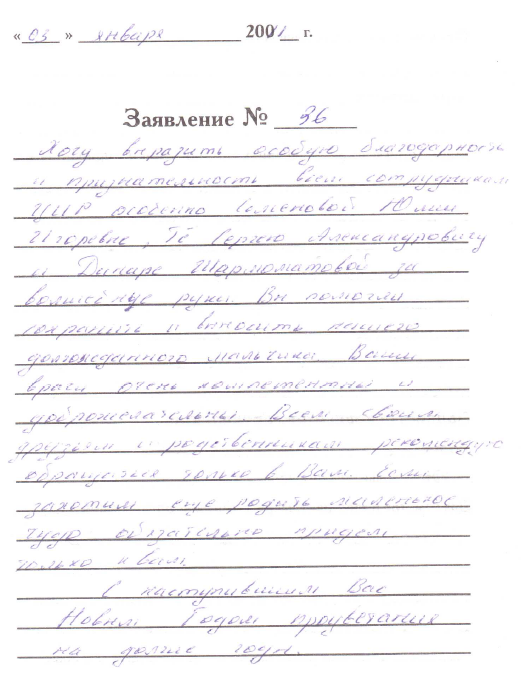 « 03 » января 200 г.
Заявление № 36
Хочу выразить особую благодарность
и признательность всем сотрудникам
ЦИР особенно Семеновой Юлии
Игоревне, Тё Сергею Александровичу
и Динаре Шармоматовой за
волшебные руки. Вы помогли
сохранить и выносить нашего
долгожданного мальчика. Ваши
врачи очень компетентны и
доброжелательны. Всем своим
друзьям и родственникам рекомендую
обращаться только в Вам. Если
захотим еще родить маленькое
чудо обязательно придем
только к вам.
С наступившим Вас
Новым Годом процветания
на долгие годы.